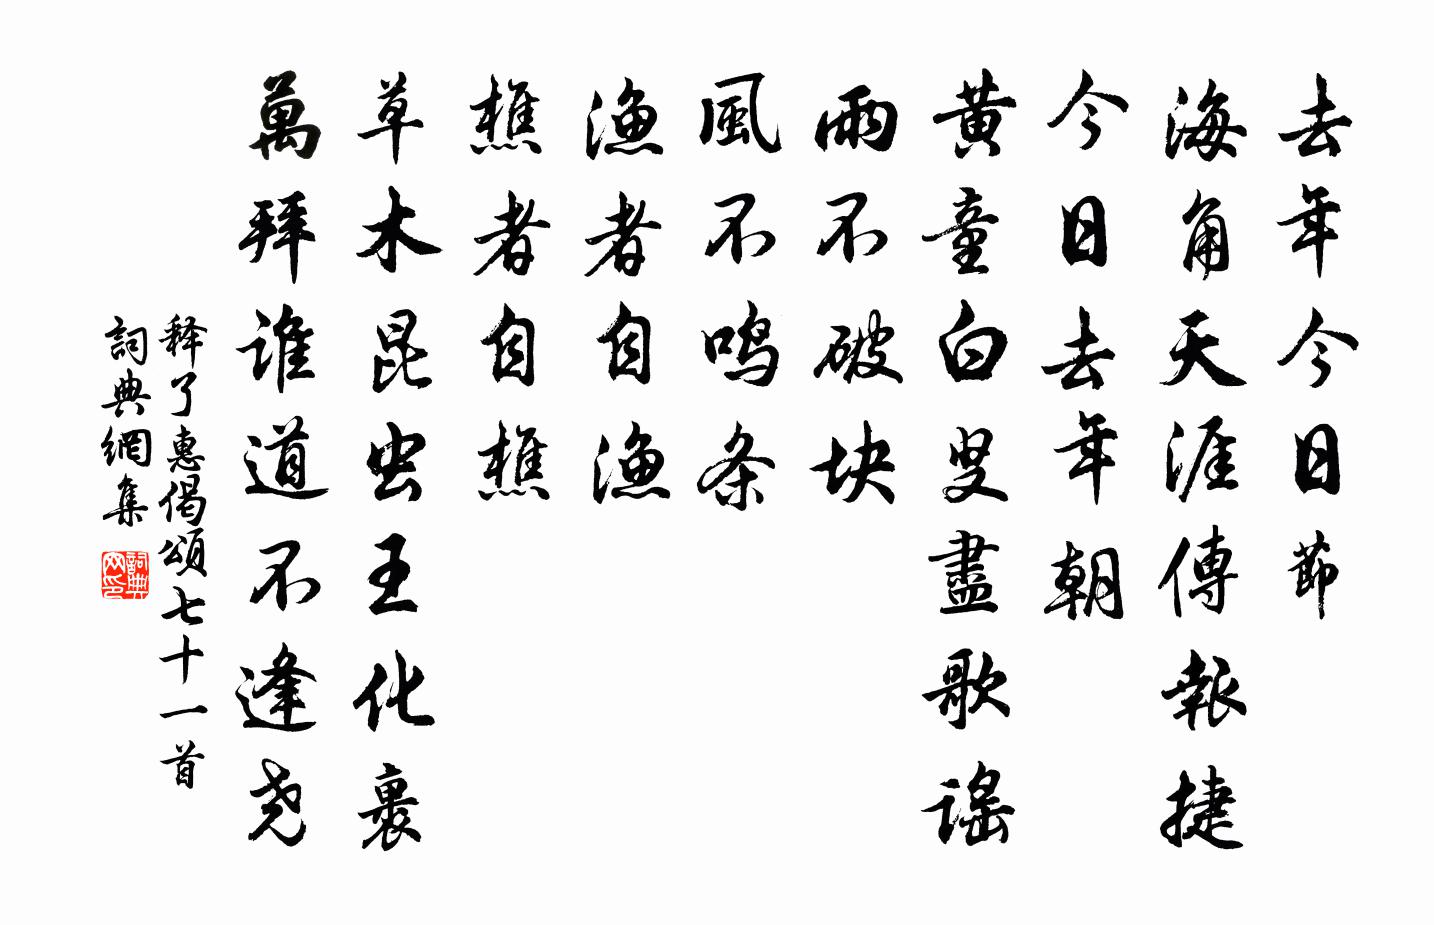 去年今日節
海角天涯傳報捷
今日去年朝
黃童白叟盡歌謠
雨不破块
風不鳴条
漁者自漁
樵者自樵
草木昆虫王化裹
萬拜誰道不逢尧
释了惠偈頌七十一首
詞典網集
詞典
网印